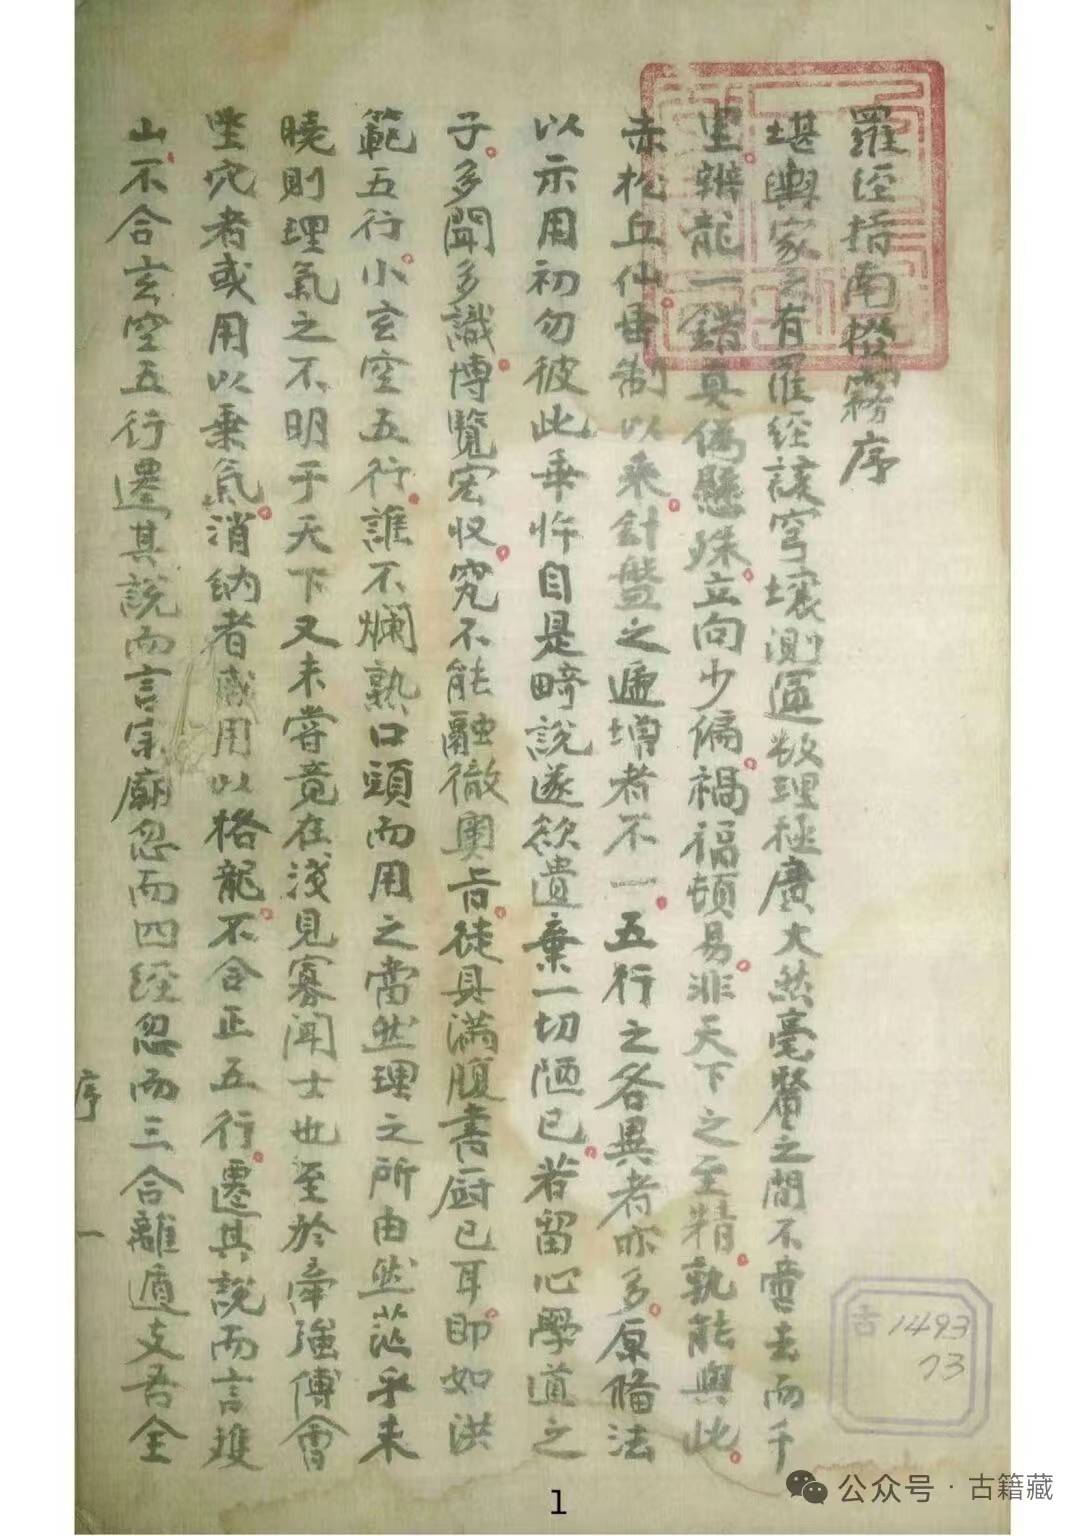 羅經指南撥霧序
堪輿家之有羅經談穹壤測運數理極廣大然毫釐之間不啻去而千
里辨龍一錯真偽懸殊立向少偏禍福頓易非天下之至精孰能與此
赤松丘仙留制以來針盤之遞增者不一五行之各異者亦多原偹法
以示用初勿彼此乖忤自是畸說遂欲遺棄一切陋已若留心學道之
子多聞多識博覽宏收究不能融徹奧旨徒具滿腹書厨已耳即如洪
範五行小玄空五行誰不爛熟口頭而用之當然理之所由然茫乎未
曉則理氣之不明于天下又未嘗竟在淺見寡聞士也至於牽強傅會
坐穴者或用以乗氣消納者或用以格龍不合正五行遷其說而言雙
山不合玄空五行遷其說而言宗廟忽而四經忽而三合離遁支吾全
序
一
古1493
73
1
公众号·古籍藏